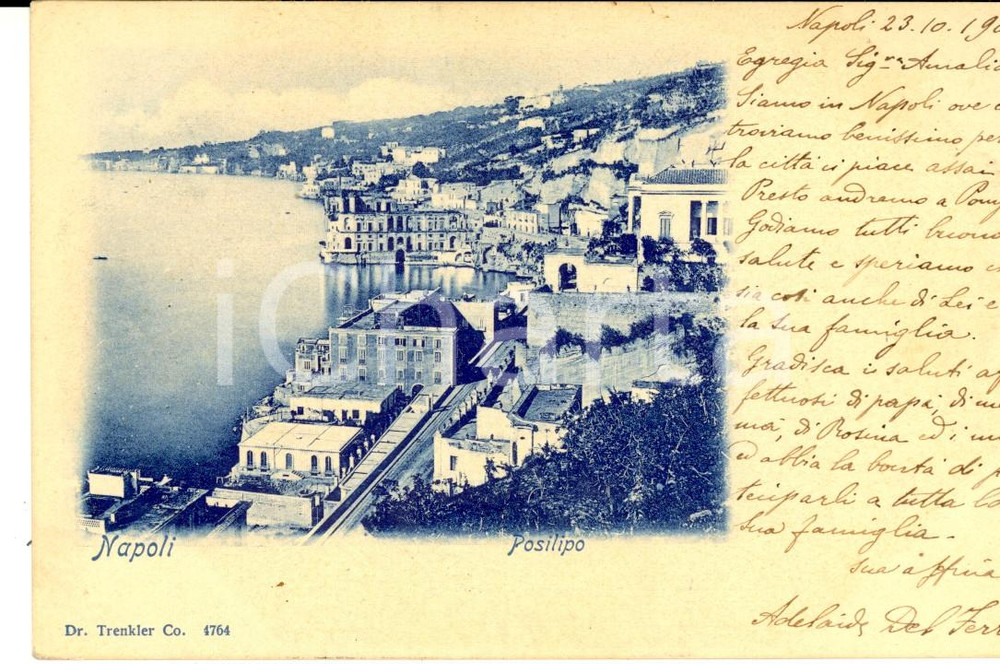 Napoli 23.10.190
Egregia Sig.ra Amalia
Siamo in Napoli ove c
troviamo benissimo per
la città ci piace assai
Presto andremo a Pomp
Godiamo tutti buona
salute e speriamo c
sia così anche di Lei e
la sua famiglia.
Gradisca i saluti af
fettuosi di papà, di m
mà, di Rosina ed i m
ed abbia la bontà di p
teciparli a tutta la
sua famiglia.
sua affma
Adelaide Del Ferr
Napoli
Posilipo
Dr. Trenkler Co. 4764
iCharta